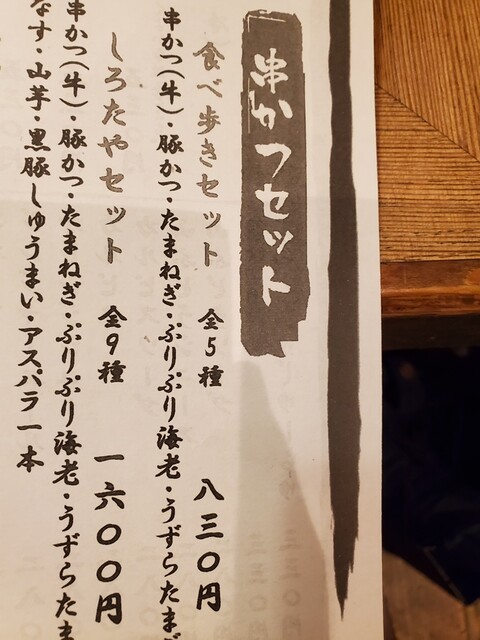 串かつセット
食べ歩きセット 全5種 八三〇円
串かつ(牛)・豚かつ・たまねぎ・ぷりぷり海老・うずらたまご
しろたやセット 全9種 一六〇〇円
串かつ(牛)・豚かつ・たまねぎ・ぷりぷり海老・うずらたま
なす・山芋・黒豚しゅうまい・アスパラ一本